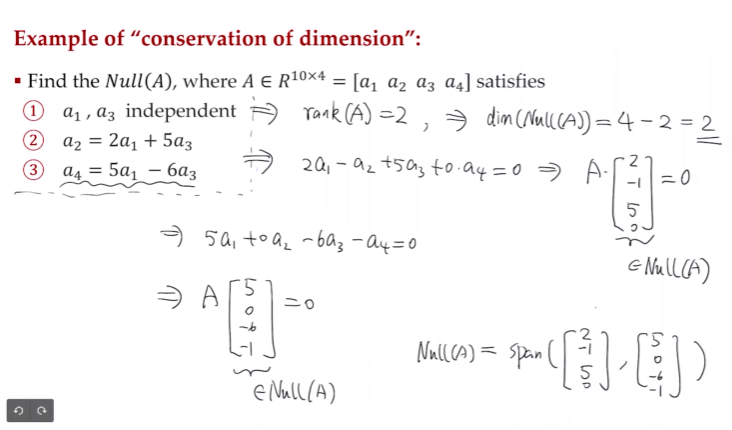 Example of “conservation of dimension”:
▪ Find the Null(A), where A ∈ R^{10×4} = [a₁ a₂ a₃ a₄] satisfies
① a₁ , a₃ independent ⇒ rank(A) = 2 , ⇒ dim(Null(A)) = 4 − 2 = 2
② a₂ = 2a₁ + 5a₃
③ a₄ = 5a₁ − 6a₃
⇒ 2a₁ − a₂ + 5a₃ + 0·a₄ = 0 ⇒ A·[2 -1 5 0] = 0
∈ Null(A)
⇒ 5a₁ + 0a₂ − 6a₃ − a₄ = 0
⇒ A [5 0 -6 -1] = 0
∈ Null(A)
Null(A) = span([2 -1 5 0], [5 0 -6 -1])